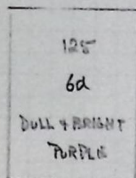 125
6d
DULL & BRIGHT
PURPLE